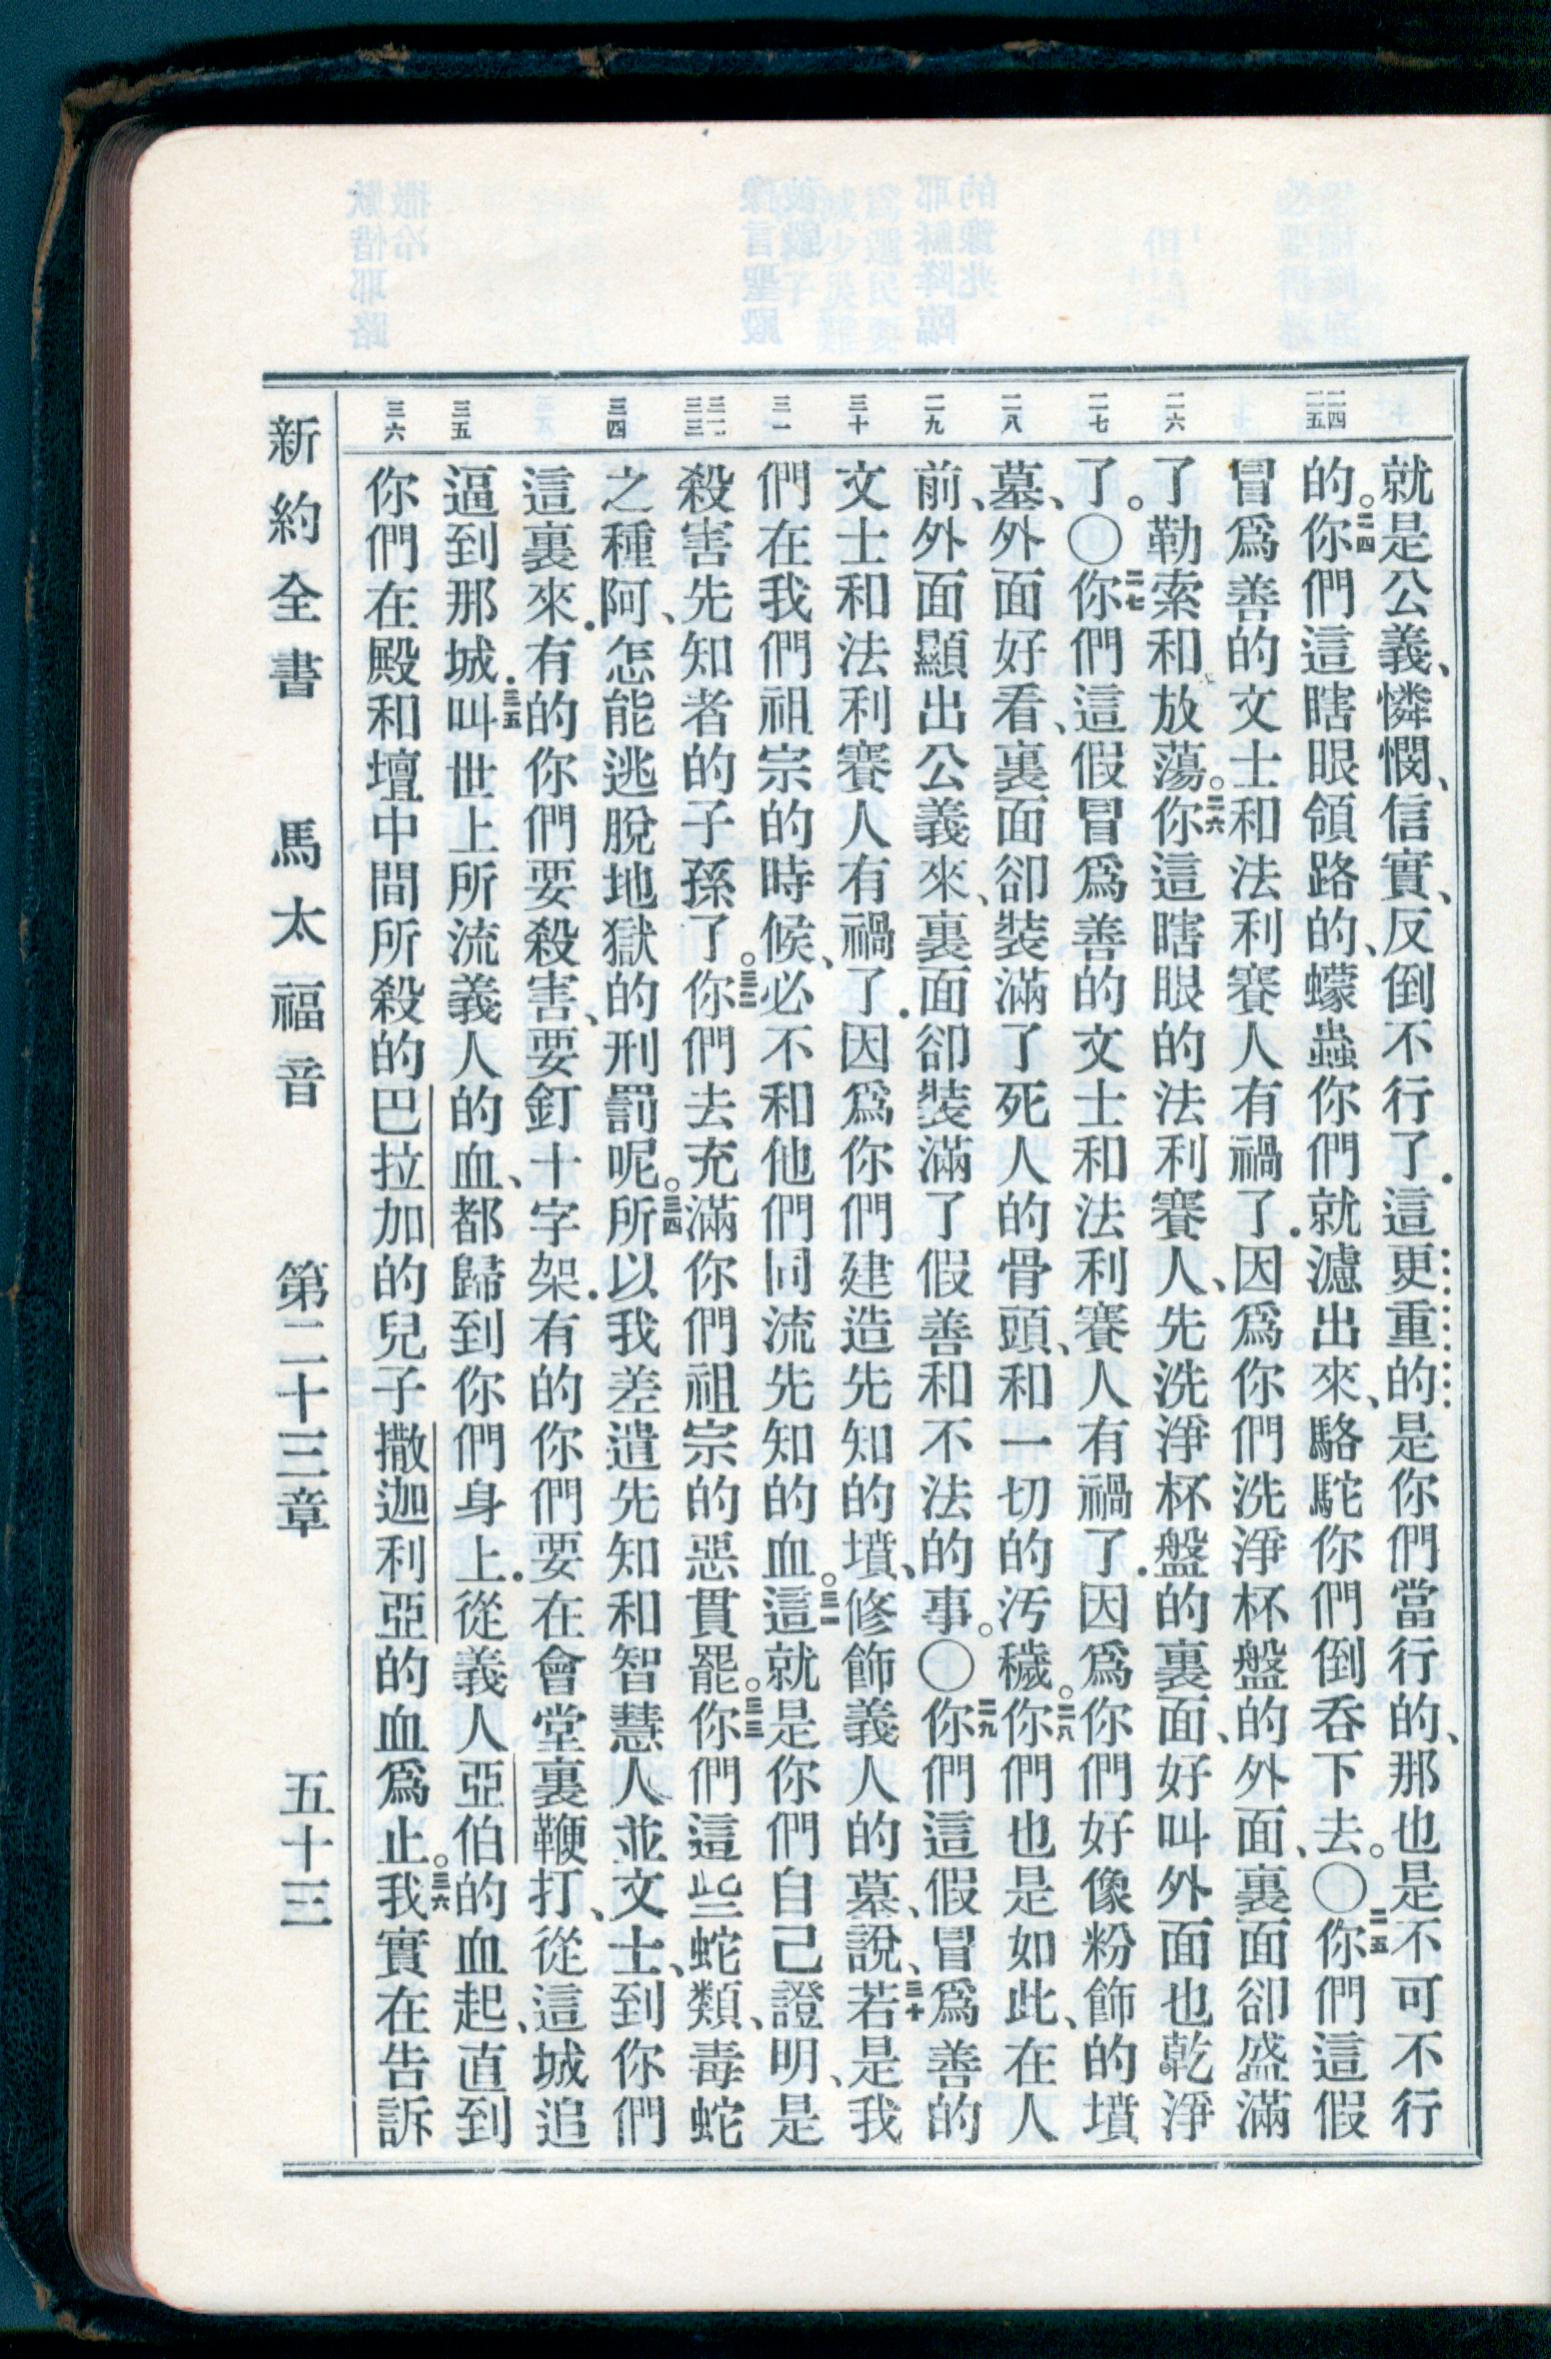 二四 二五 二六 二七 二八 二九 三十 三一 三二 三三 三四 三五 三六
就是公義、憐憫、信實、反倒不行了．這更重的是你們當行的、那也是不可不行
的。二四你們這瞎眼領路的、蠓蟲你們就濾出來、駱駝你們倒吞下去。〇二五你們這假
冒爲善的文士和法利賽人有禍了．因爲你們洗淨杯盤的外面、裏面卻盛滿
了勒索和放蕩。二六你這瞎眼的法利賽人、先洗淨杯盤的裏面、好叫外面也乾淨
了。〇二七你們這假冒爲善的文士和法利賽人有禍了．因爲你們好像粉飾的墳
墓、外面好看、裏面卻裝滿了死人的骨頭、和一切的汚穢。二八你們也是如此、在人
前、外面顯出公義來、裏面卻裝滿了假善和不法的事。〇二九你們這假冒爲善的
文士和法利賽人有禍了．因爲你們建造先知的墳、修飾義人的墓、說、三十若是我
們在我們祖宗的時候、必不和他們同流先知的血。三一這就是你們自己證明、是
殺害先知者的子孫了。三二你們去充滿你們祖宗的惡貫罷。三三你們這些蛇類、毒蛇
之種阿、怎能逃脫地獄的刑罰呢。三四所以我差遣先知和智慧人並文士、到你們
這裏來．有的你們要殺害、要釘十字架．有的你們要在會堂裏鞭打、從這城追
逼到那城．三五叫世上所流義人的血、都歸到你們身上．從義人亞伯的血起、直到
你們在殿和壇中間所殺的巴拉加的兒子撒迦利亞的血爲止。三六我實在告訴
新約全書 馬太福音 第二十三章 五十三